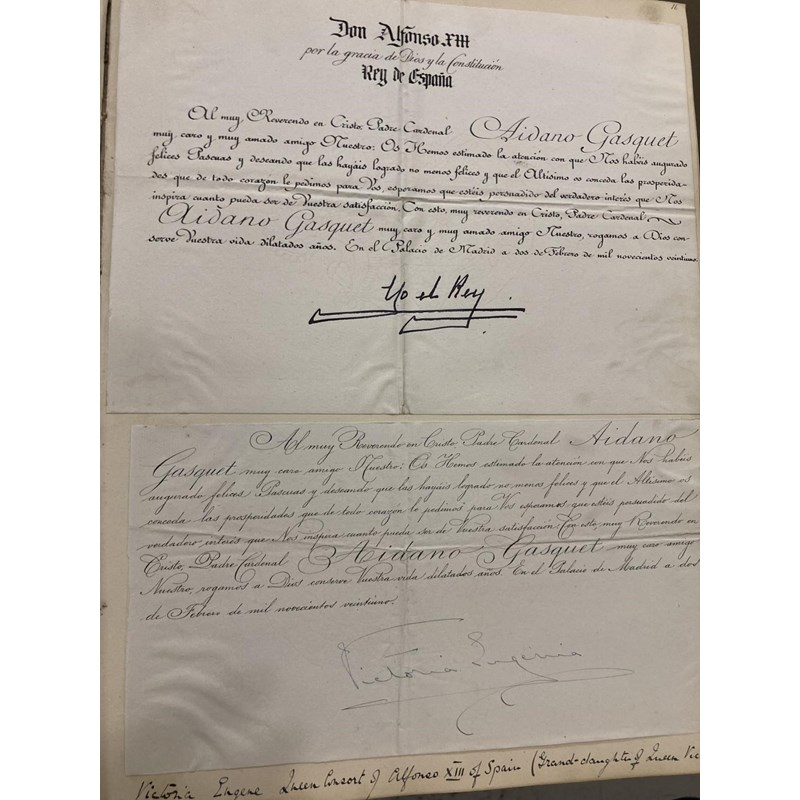 16.
Don Alfonso XIII
por la gracia de Dios y la Constitución
Rey de España
Al muy Reverendo en Cristo Padre Cardenal Aidano Gasquet
muy caro y muy amado amigo Nuestro: Os Hemos estimado la atención con que Nos habéis augurado
felices Pascuas y deseando que las hayáis logrado no menos felices y que el Altísimo os conceda las prosperida-
des que de todo corazón le pedimos para Vos, esperamos que estéis persuadido del verdadero interés que Nos
inspira cuanto pueda ser de Vuestra satisfacción. Con esto, muy reverendo en Cristo, Padre Cardenal
Aidano Gasquet muy caro y muy amado amigo Nuestro, rogamos a Dios con-
serve Vuestra vida dilatados años. En el Palacio de Madrid a dos de Febrero de mil novecientos veintiuno.
Yo el Rey.
Al muy Reverendo en Cristo Padre Cardenal Aidano
Gasquet muy caro amigo Nuestro: Os Hemos estimado la atención con que Nos habéis
augurado felices Pascuas y deseando que las hayáis logrado no menos felices y que el Altísimo os
conceda las prosperidades que de todo corazón le pedimos para Vos esperamos que estéis persuadido del
verdadero interés que Nos inspira cuanto pueda ser de Vuestra satisfacción Con esto, muy Reverendo en
Cristo, Padre Cardenal Aidano Gasquet muy caro amigo
Nuestro, rogamos a Dios conserve Vuestra vida dilatados años. En el Palacio de Madrid a dos
de Febrero de mil novecientos veintiuno.
Victoria Eugenia
Victoria Eugene Queen Consort of Alfonso XIII of Spain (Grand-daughter of Queen Vic